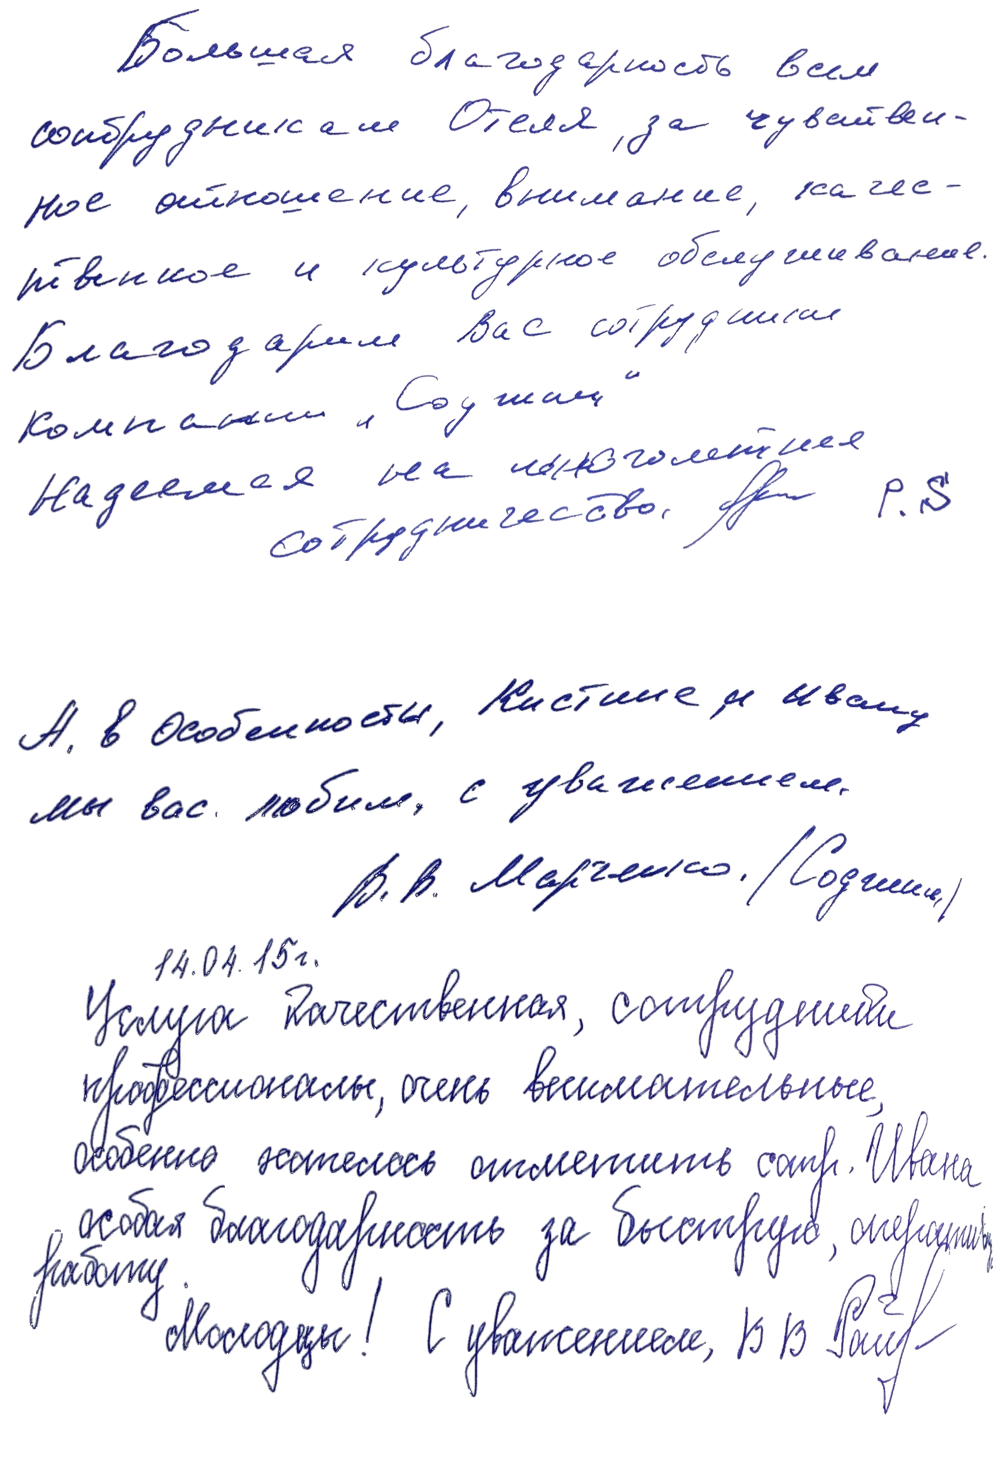 Большая благодарность всем
сотрудникам Отеля, за чувствен-
ное отношение, внимание, качес-
твенное и культурное обслуживание.
Благодарим Вас сотрудники
компании „Соджиц“
Надеемся на многолетнее
сотрудничество. P.S
А. в Особенности, Кистине и Ивану
мы вас. любим, с уважением.
В.В. Марченко. /Соджиц/
14.04.15г.
Услуга качественная, сотрудники
профессионалы, очень внимательные,
особенно хотелось отметить сотр. Ивана
особая благодарность за быструю,
работу.
Молодцы! С уважением, В В